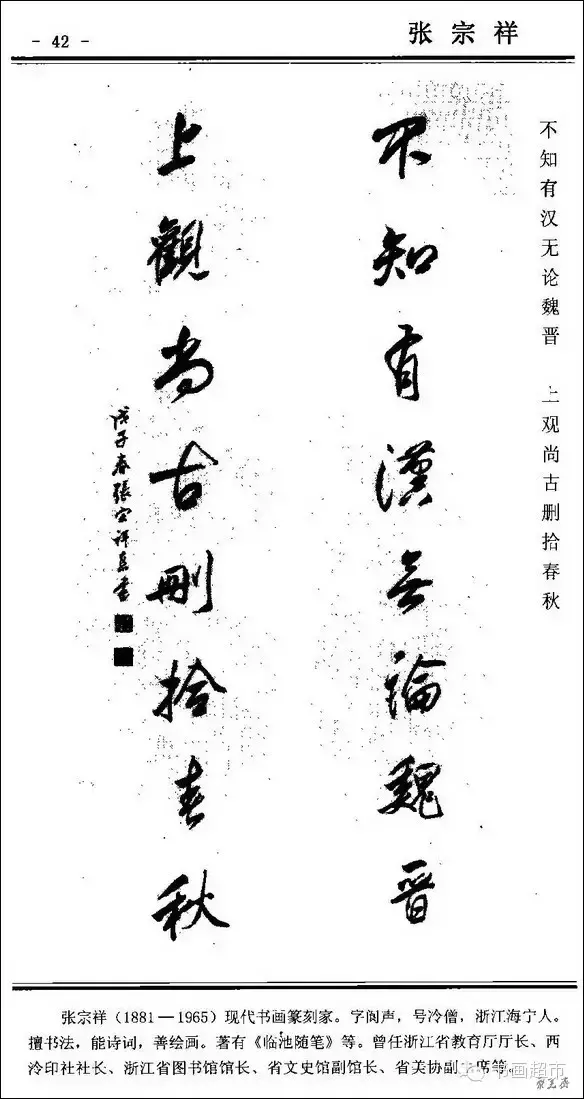 - 42 -
张宗祥
不知有汉无论魏晋 上观尚古删拾春秋
不知有漢無論魏晉
上觀尚古刪拾春秋
戊子春張宗祥
张宗祥(1881—1965)现代书画篆刻家。字阆声,号冷僧,浙江海宁人。
擅书法,能诗词,善绘画。著有《临池随笔》等。曾任浙江省教育厅厅长、西
泠印社社长、浙江省图书馆馆长、省文史馆副馆长、省美协副主席等。
书画超市